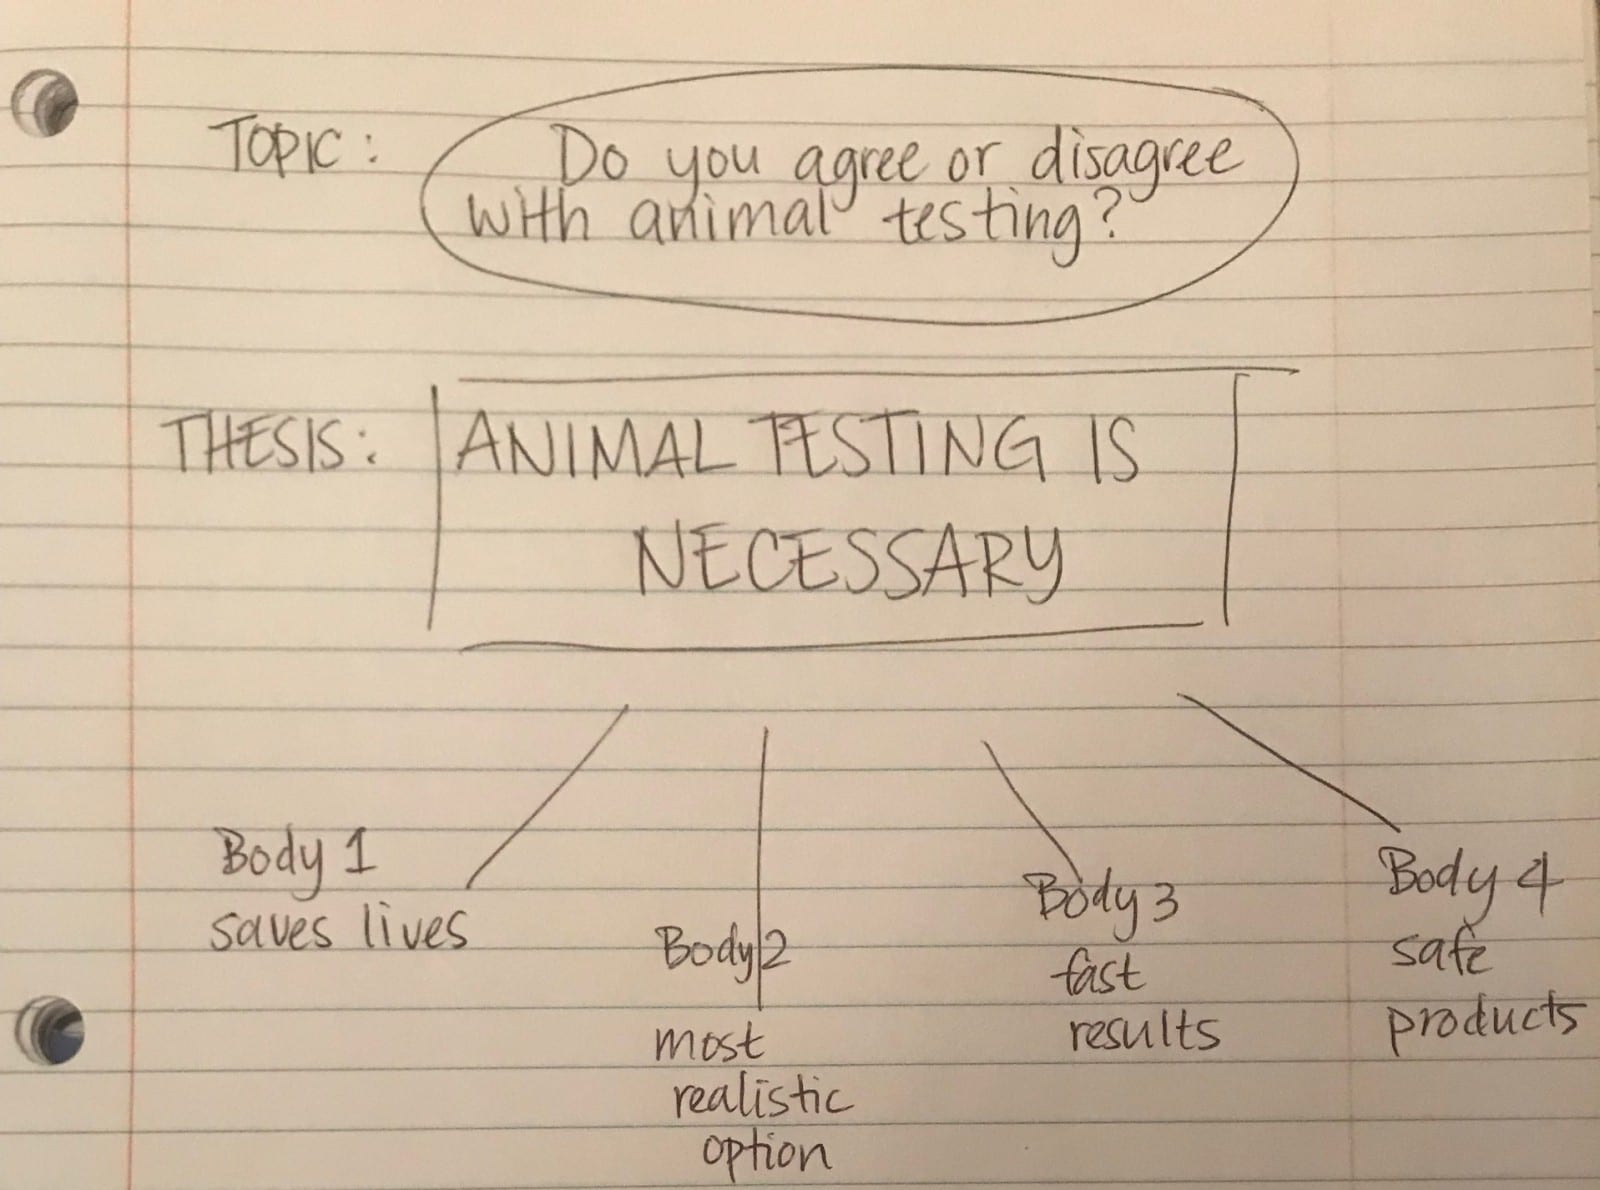 TOPIC: Do you agree or disagree
with animal testing?
THESIS: ANIMAL TESTING IS
NECESSARY
Body 1
saves lives
Body 2
most
realistic
option
Body 3
fast
results
Body 4
safe
products